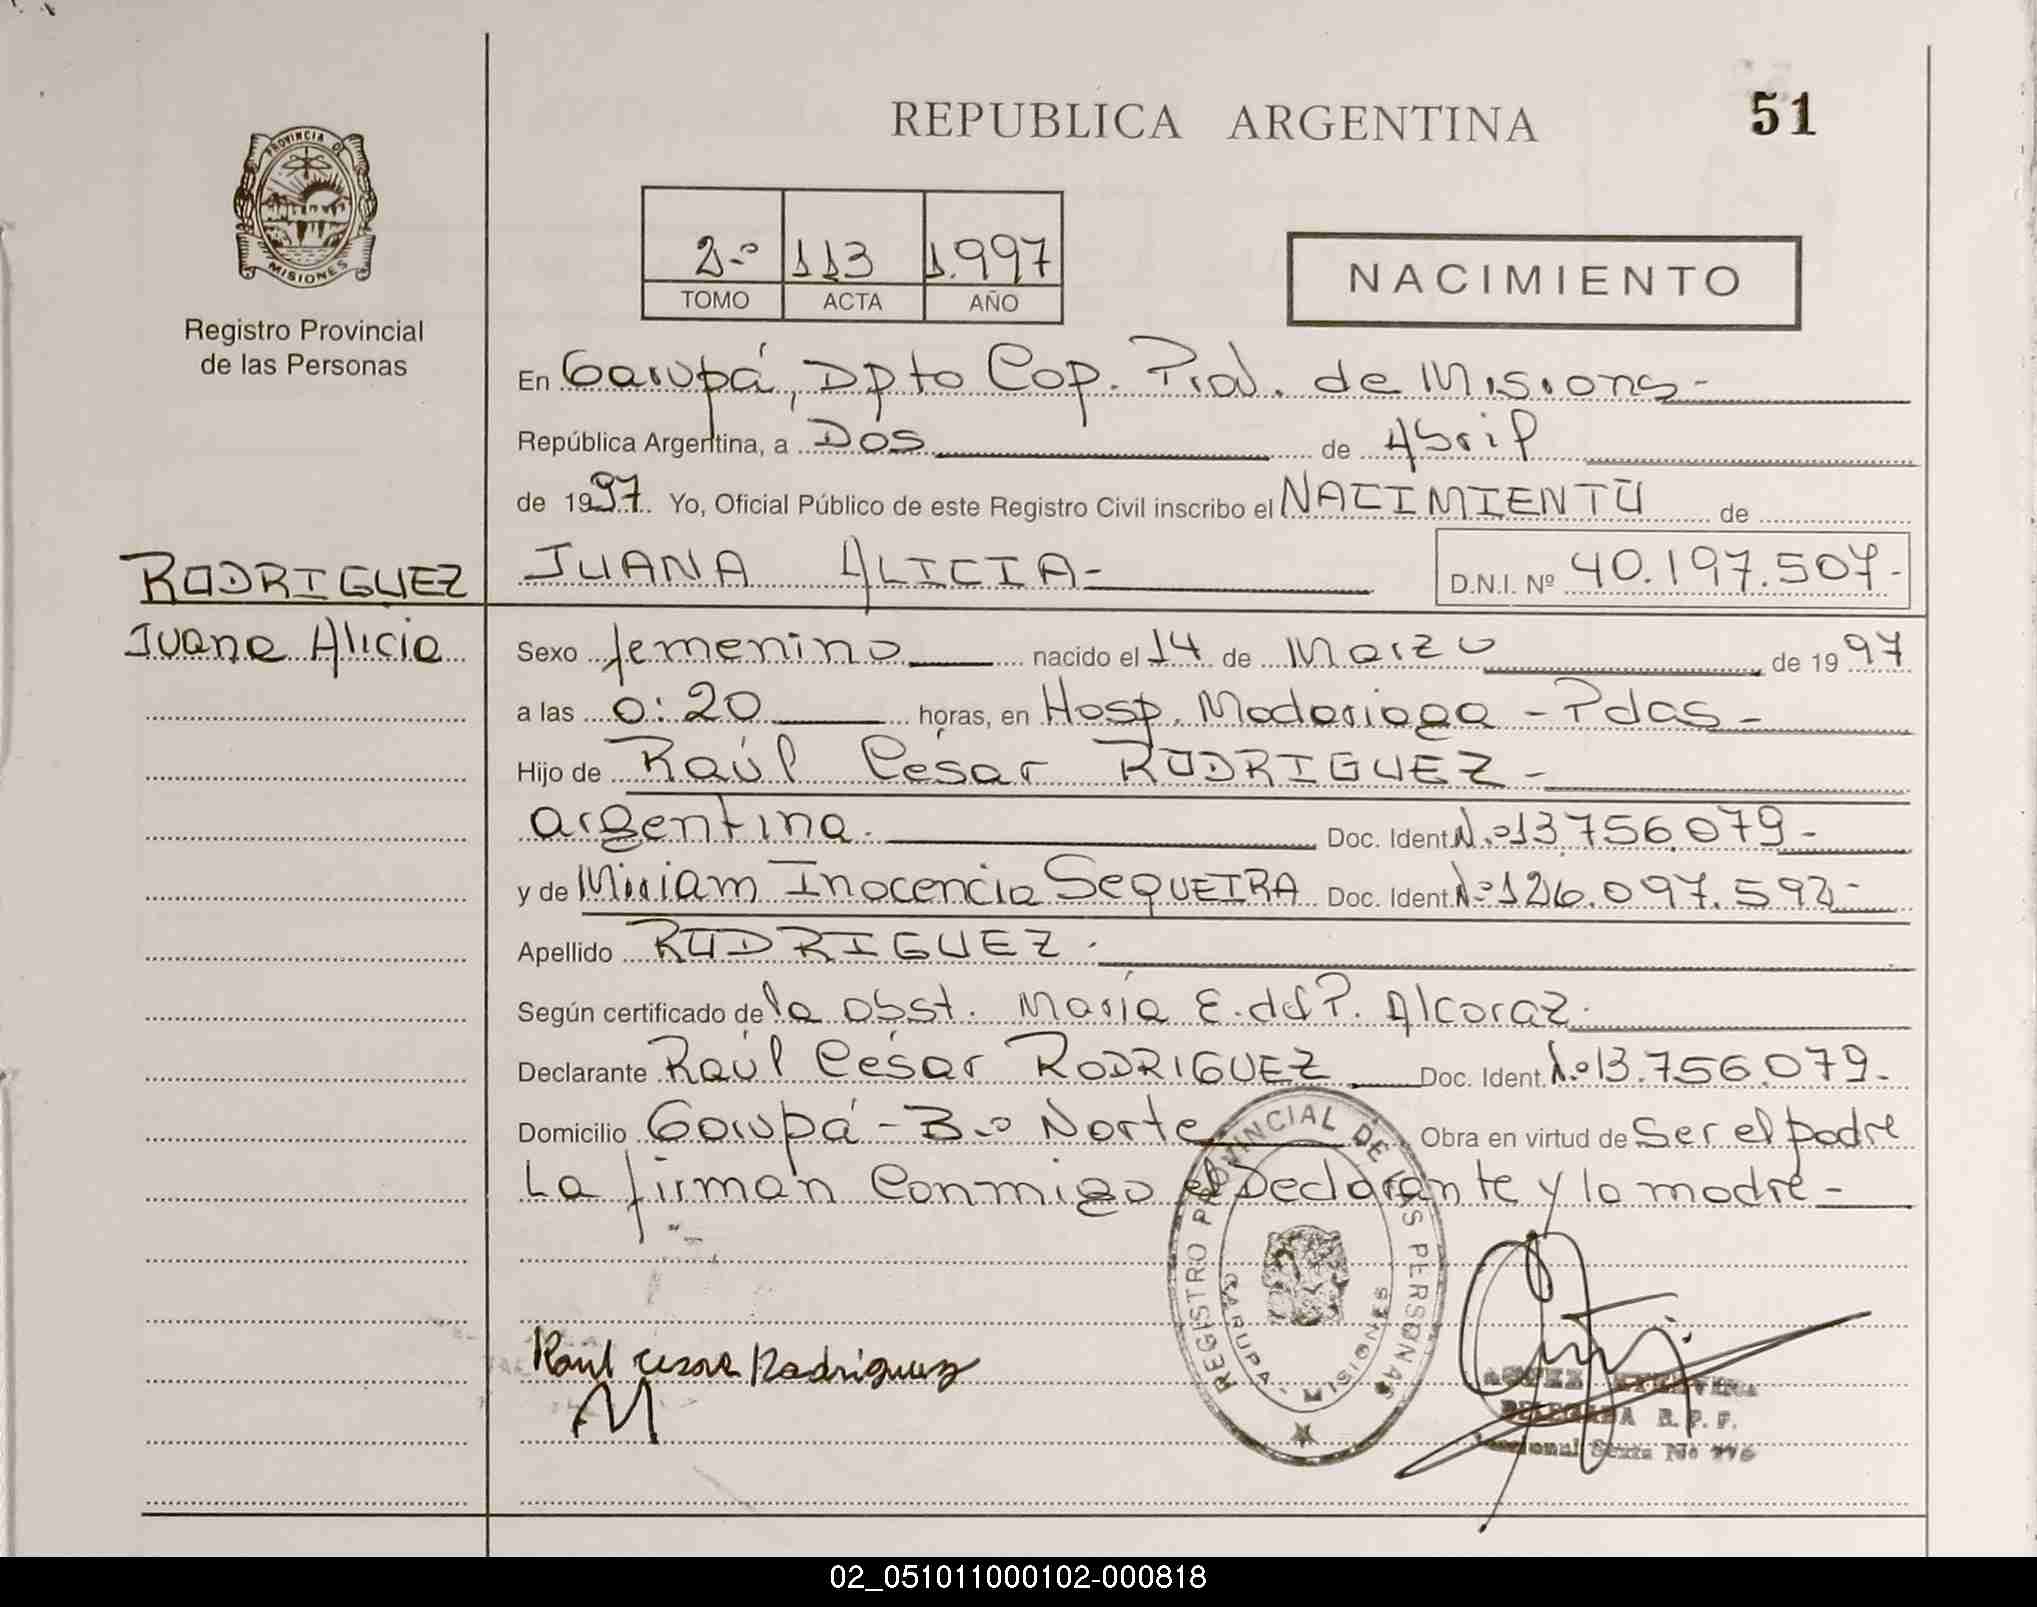 REPUBLICA ARGENTINA
51
PROVINCIA DE
MISIONES
Registro Provincial
de las Personas
2.º 113 1.997
TOMO ACTA AÑO
NACIMIENTO
En Garupá, Dpto Cap. Prov. de Misiones-
República Argentina, a Dos de Abril
de 1997. Yo, Oficial Público de este Registro Civil inscribo el NACIMIENTO de
RODRIGUEZ
JUANA ALICIA- D.N.I. Nº 40.197.507-
Juana Alicia
Sexo femenino nacido el 14 de Marzo de 1997
a las 0:20 horas, en Hosp. Madariaga - Pdas-
Hijo de Raúl César RODRIGUEZ-
argentina. Doc. Ident. N.º 13.756.079-
y de Miriam Inocencia SeQUEIRA Doc. Ident. Nº 126.097.592-
Apellido RODRIGUEZ.
Según certificado de la Obst. María E. del P. Alcaraz.
Declarante Raúl César RODRIGUEZ Doc. Ident. N.º 13.756.079-
Domicilio Garupá - B.º Norte Obra en virtud de Ser el padre
La firman Conmigo el Declarante y la madre-
REGISTRO PROVINCIAL DE LAS PERSONAS
GARUPA - MISIONES
Raul cesar Rodriguez
M
DELEGADA R. P. P.
02_051011000102-000818